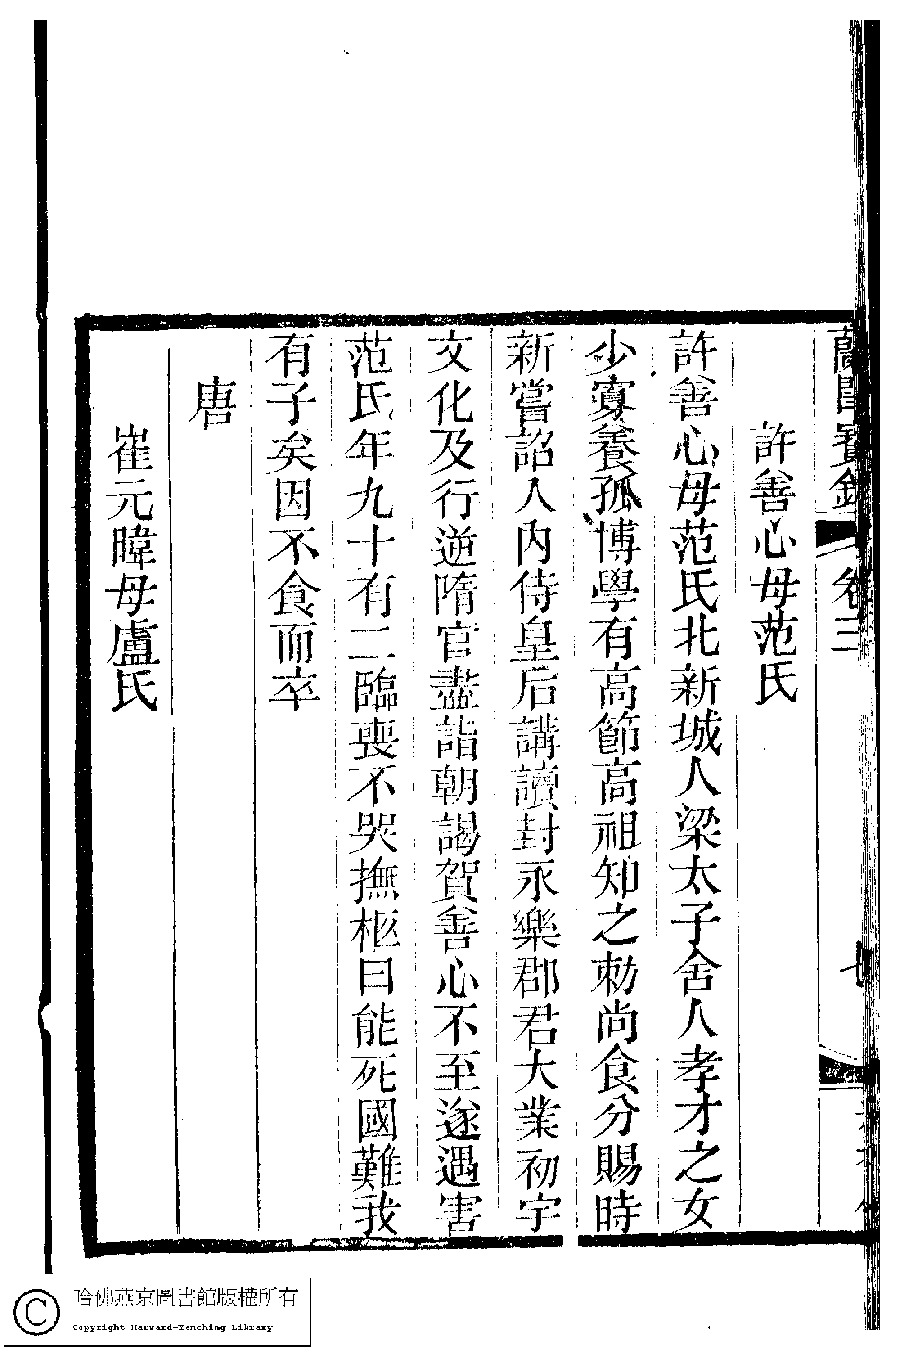 蘭閨寶錄 卷三
許善心母范氏
許善心母范氏北新城人梁太子舍人孝才之女
少寡養孤博學有高節高祖知之勑尚食分賜時
新嘗詔入內侍皇后講讀封永樂郡君大業初宇
文化及行逆隋官盡詣朝謁賀善心不至遂遇害
范氏年九十有二臨喪不哭撫柩曰能死國難我
有子矣因不食而卒
唐
崔元暐母盧氏
哈佛燕京圖書館版權所有
Copyright Harvard-Yenching Library